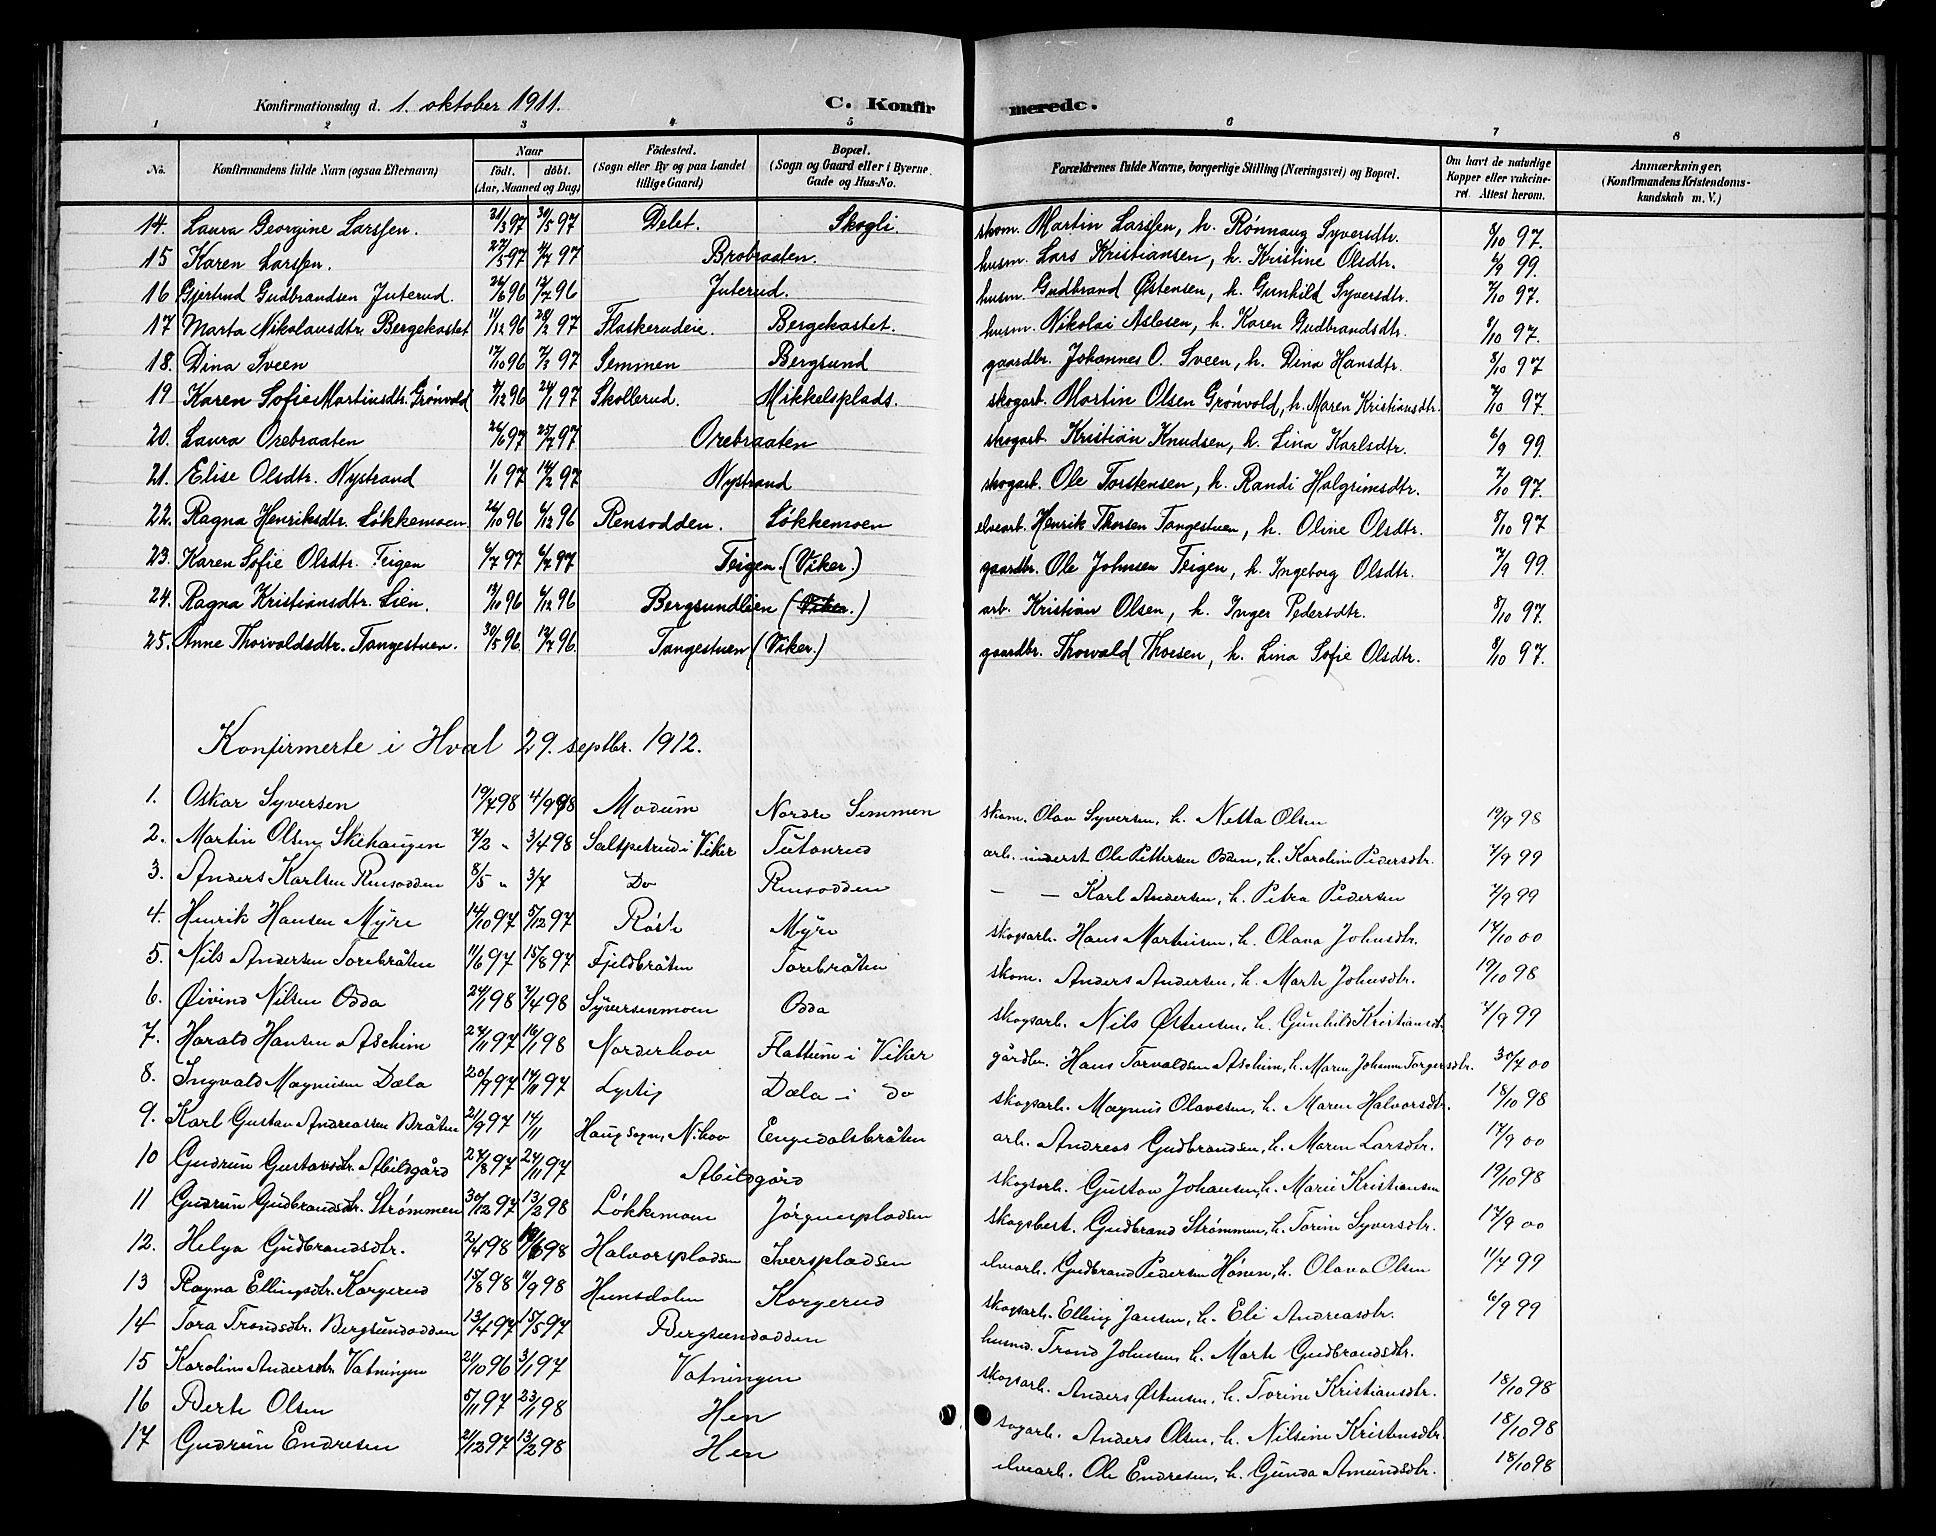 Konfirmationsdag d. 1. oktober 1911. C. Konfirmerede.
1 2 3 4 5 6 7 8
No. Konfirmandens fulde Navn (ogsaa Efternavn) Naar født. døbt. (Aar, Maaned og Dag) Fødested. (Sogn eller By og paa Landet tillige Gaard) Bopæl. (Sogn og Gaard eller i Byerne Gade og Hus-No. Forældrenes fulde Navne, borgerlige Stilling (Næringsvei) og Bopæl. Om havt de naturlige Kopper eller vakcineret Attest herom. Anmærkninger, (Konfirmandens Kristendomskundskab m. V.)
14. Laura Georgine Larssen. 21/3 97 30/5 97 Delet. Skogli. skom. Martin Larssen, h. Rønnaug Syversdtr. 8/10 97.
15 Karen Larssen. 27/5 97 4/7 97 Brobraaten. husm. Lars Kristiansen, h. Kristine Olsdtr. 6/9 99.
16 Gjertrud Gudbrandsen Juterud. 26/6 96 12/7 96 Juterud. husm. Gudbrand Østensen, h. Gunhild Syversdtr. 7/10 97.
17 Marta Nikolausdtr. Bergekastet 11/12 96 28/2 97 Flaskerudeie. Bergekastet. husm. Nikolai Aslesen, h. Karen Gudbrandsdtr. 8/10 97.
18. Dina Sveen 17/10 96 7/2 97 Semmen Bergsund gaardbr. Johannes O. Sveen, h. Dina Hansdtr. 8/10 97
19 Karen Sofie Martinsdtr. Grønvold 17/12 96 24/1 97 Skollerud. Mikkelsplads. skogarb. Martin Olsen Grønvold, h. Maren Kristiansdtr. 7/10 97.
20. Laura Orebraaten 26/6 97 25/7 97 Orebraaten skogarb. Kristian Knudsen, h. Lina Karlsdtr. 6/9 99.
21. Elise Olsdtr. Nystrand 1/1 97 14/2 97 Nystrand skogarb. Ole Torstensen, h. Randi Halgrimsdtr. 7/10 97.
22. Ragna Henriksdtr. Løkkemoen 26/10 96 6/12 96 Rensodden. Løkkemoen elvearb. Henrik Thorsen Tangestuen, h. Oline Olsdtr. 8/10 97
23. Karen Sofie Olsdtr. Teigen 6/7 97 6/7 97 Teigen. (Viker.) gaardbr. Ole Johnsen Teigen, h. Ingeborg Olsdtr. 7/9 99.
24. Ragna Kristiansdtr. Lien. 17/10 96 6/12 96 Bergsundlien (Viker.) arb. Kristian Olsen, h. Inger Pedersdtr. 8/10 97.
25. Anne Thorvaldsdtr. Tangestuen. 30/5 96 12/7 96. Tangestuen (Viker.) gaardbr. Thorvald Thorsen, h. Lina Sofie Olsdtr. 8/10 97.
Konfirmerte i Hval 29. septbr. 1912.
1. Oskar Syversen 19/7 98 4/9 98 Modum Nordre Semmen skom. Olav Syversen, h. Netta Olsen 19/9 98
2. Martin Olsen Skihaugen 7/2 " 3/4 98 Saltpetrud i Viker Tutanrud arb. inderst Ole Pettersen Odden, h. Karoline Pedersdtr. 7/9 99
3. Anders Karlsen Rensodden 8/5 " 3/7 Do Rensodden — — Karl Andersen, h. Petra Pedersen 7/9 99
4. Henrik Hansen Myre 14/10 97 5/12 97 Røste Myre skogsarb. Hans Martinsen, h. Olava Johnsdtr. 17/10 00
5. Nils Andersen Torebråten 11/6 97 15/8 97 Fjeldbråten Torebråten skom. Anders Andersen, h. Marte Johnsdtr. 19/10 98
6. Øivind Nilsen Odda 24/1 98 7/4 98 Syversenmoen Odda skogsarb. Nils Østensen, h. Gunhild Kristiansdtr 7/9 99
7. Harald Hansen Aschim 24/11 97 16/1 98 Norderhov Flattum i Viker gårdbr. Hans Torvaldsen Aschim, h. Maren Johanne Torgersdtr. 30/7 00
8. Ingvald Magnusen Dæla 20/9 97 14/11 97 Lystig Dæla i do skogsarb. Magnus Olavesen, h. Maren Halvorsdtr. 18/10 98
9. Karl Gustav Andreassen Bråten 21/9 97 14/11 Haug sogn, N.hov Engedalsbråten arb. Andreas Gudbrandsen, h. Maren Larsdtr. 17/9 00
10 Gudrun Gustavsdtr. Abildgård 27/8 97 24/11 97 Abildgård skogsarb. Gustav Johansen, h. Marie Kristiansen 19/10 98
11 Gudrun Gudbrandsdtr. Strømmen 30/12 97 13/2 98 Løkkemoen Jørgenspladsen skogsbest. Gudbrand Strømmen, h. Torine Syversdtr. 17/9 00
12. Helga Gudbrandsdtr. 2/4 98 /6 98 Halvorspladsen Iverspladsen elvearb. Gudbrand Pedersen Hønen, h. Olava Olsen 11/7 99
13 Ragna Ellingsdtr. Korgerud 15/8 98 4/9 98 Hunsdalen Korgerud skogsarb. Elling Jansen, h. Eli Andreasdtr. 6/9 99
14 Tora Trondsdtr. Bergsundodden 13/4 97 15/5 97 Bergsundodden husmd. Trond Johnsen, h. Marte Gudbrandsdtr.
15 Karoline Andersdtr. Vatningen 21/10 96 3/1 97 Vatningen skogsarb. Anders Østensen, h. Torine Kristiansdtr. 18/10 98
16 Berte Olsen 5/11 97 23/1 98 Hen sogarb. Anders Olsen, h. Nilsine Kristensdtr. 18/10 98
17 Gudrun Endresen 21/12 97 13/2 98 Hen elvearb. Ole Endresen, h. Gunda Amundsdtr. 18/10 98